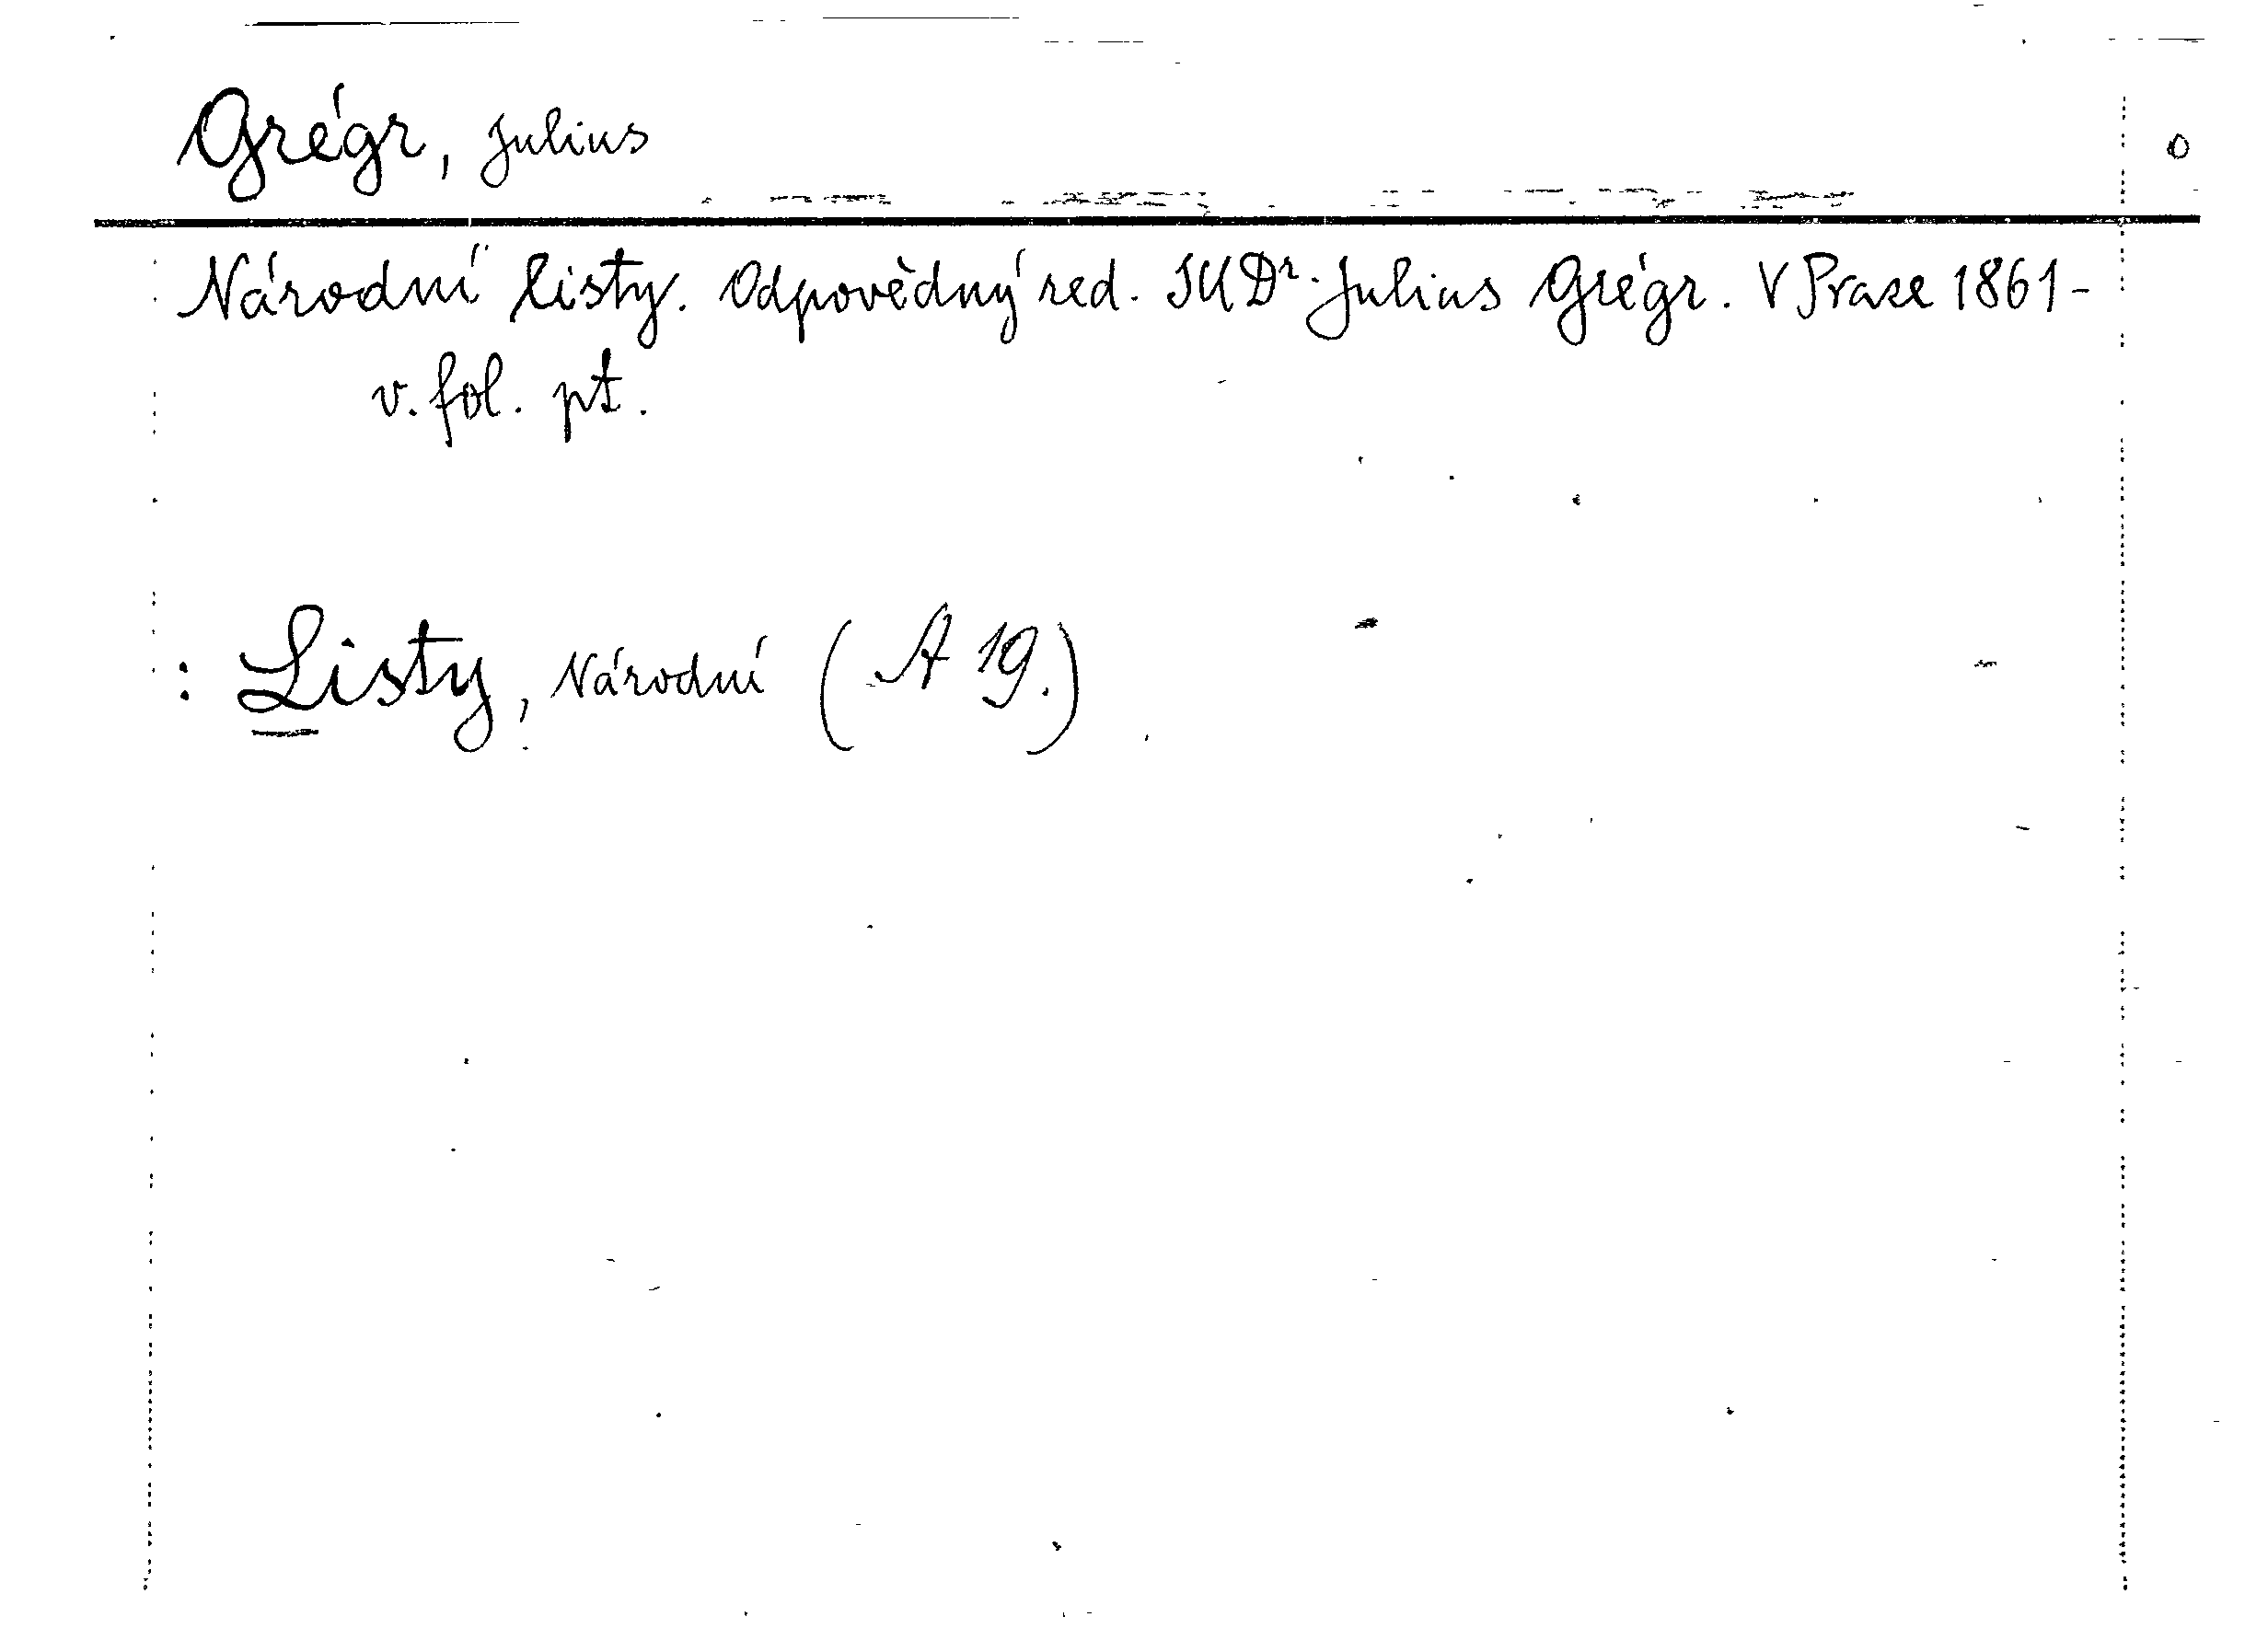 Grégr, Julius o
Národní listy. Odpovědný red. JUDr. Julius Grégr. V Praze 1861-
v. fol. pt.
: Listy, Národní (A 19.)